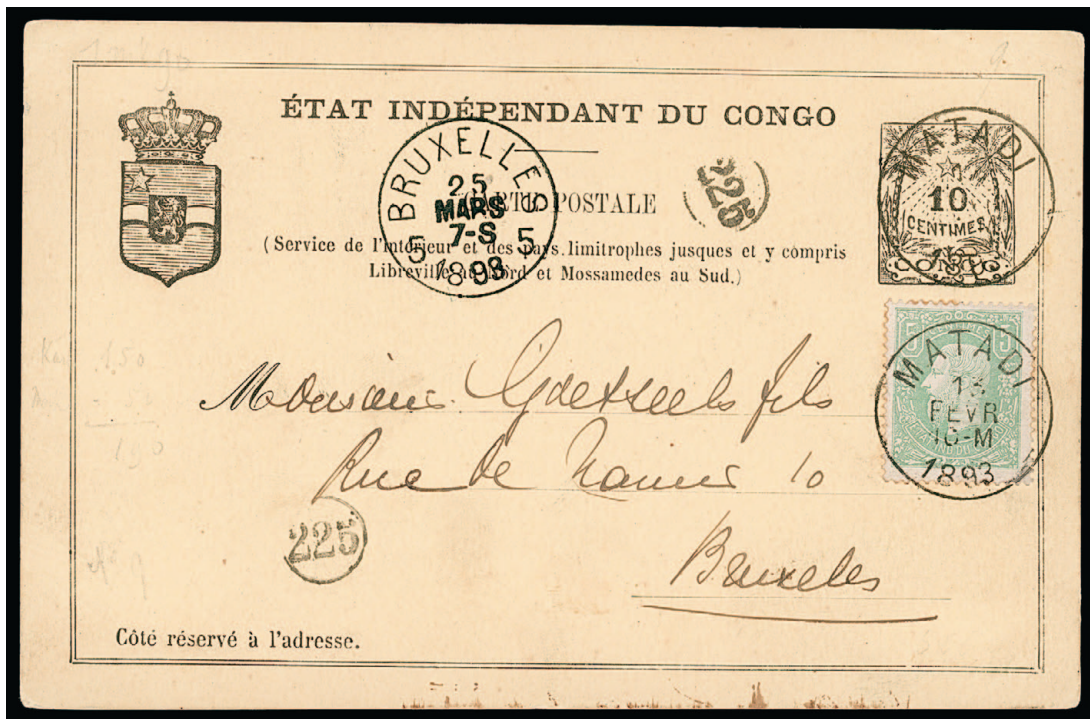 ÉTAT INDÉPENDANT DU CONGO
CARTE POSTALE
(Service de l'intérieur et des pays limitrophes jusques et y compris
Libreville au Nord et Mossamedes au Sud.)
BRUXELLES
25
MARS
7-S
5 5
1893
225
MATADI
10
CENTIMES
CONGO
5 5
MATADI
FEVR
10-M
1893
Monsieur Goetseels fils
Rue de Namur 10
Bruxelles
225
Côté réservé à l'adresse.